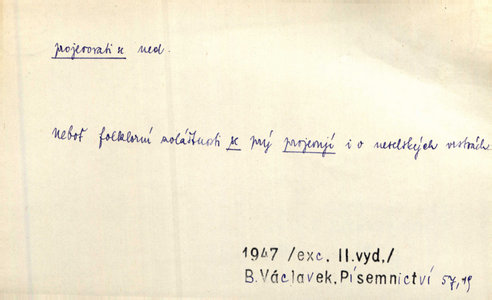 projevovati se ned.
Neboť folklorní zvláštnosti se prý projevují i v neselských vrstvách
1947 /exc. II.vyd,/
B.Václavek, Písemnictví 57,19